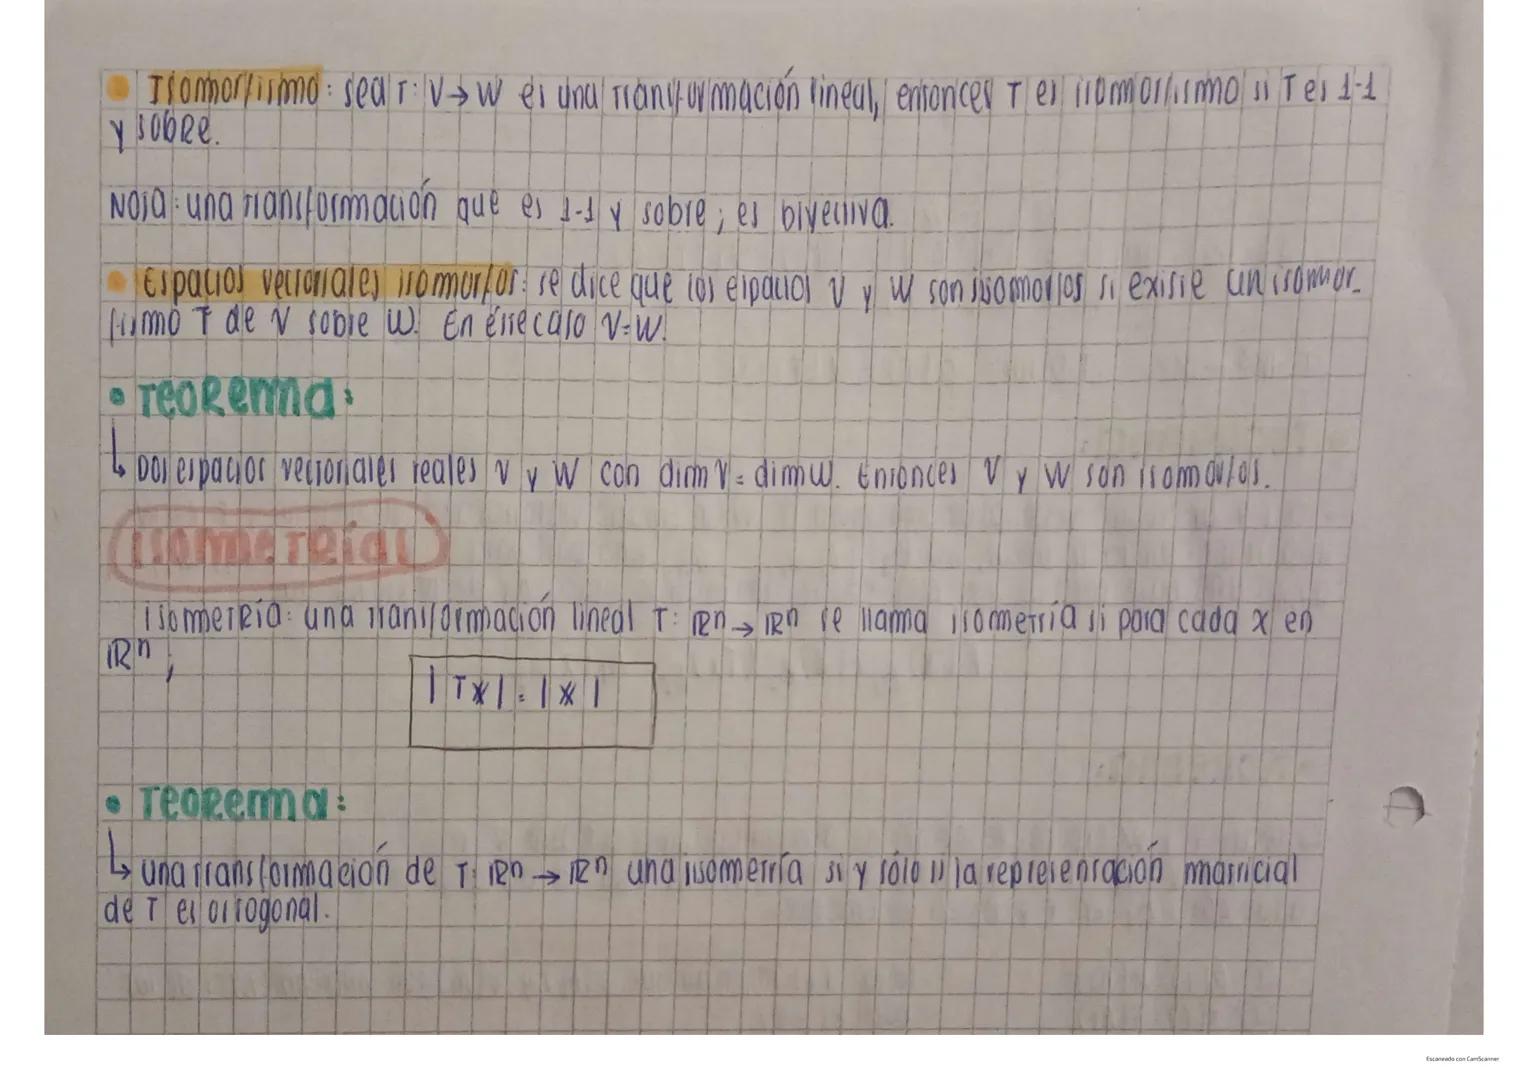 • Isomorfismo: sea T: V→W es una transformación lineal, entonces T es isomorfismo si T es 1-1
y sobre.
Nota: una transformación que es 1-1 y sobre; es biyectiva.
• Espacios vectoriales isomorfos: se dice que los espacios V y W son isomorfos si existe un isomor-
fismo T de V sobre W. En éste caso V=W.
• Teorema:
↳ Dos espacios vectoriales reales V y W con dim V = dim W. Entonces V y W son isomorfos.
Isometrías
Isometría: una transformación lineal T: ℝn → ℝn se llama isometría si para cada x en
ℝn,
|Tx| = |x|
• Teorema:
↳ una transformación de T: ℝn → ℝn una isometría si y sólo si la representación matricial
de T es ortogonal.
Escaneado con CamScanner